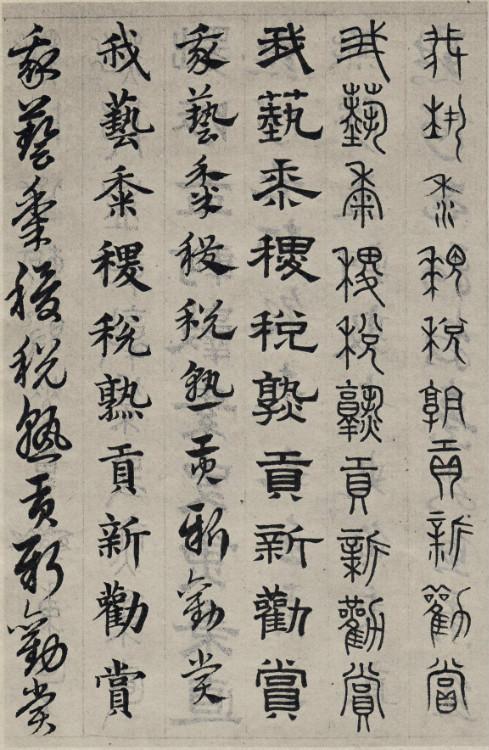 我藝黍稷稅熟貢新勸賞
我藝黍稷稅熟貢新勸賞
我藝黍稷稅熟貢新勸賞
我藝黍稷稅熟貢新勸賞
我藝黍稷稅熟貢新勸賞
我藝黍稷稅熟貢新勸賞